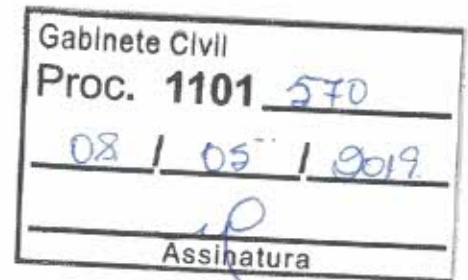 Gabinete Civil
Proc. 1101 570
08 / 05 / 2019
Assinatura